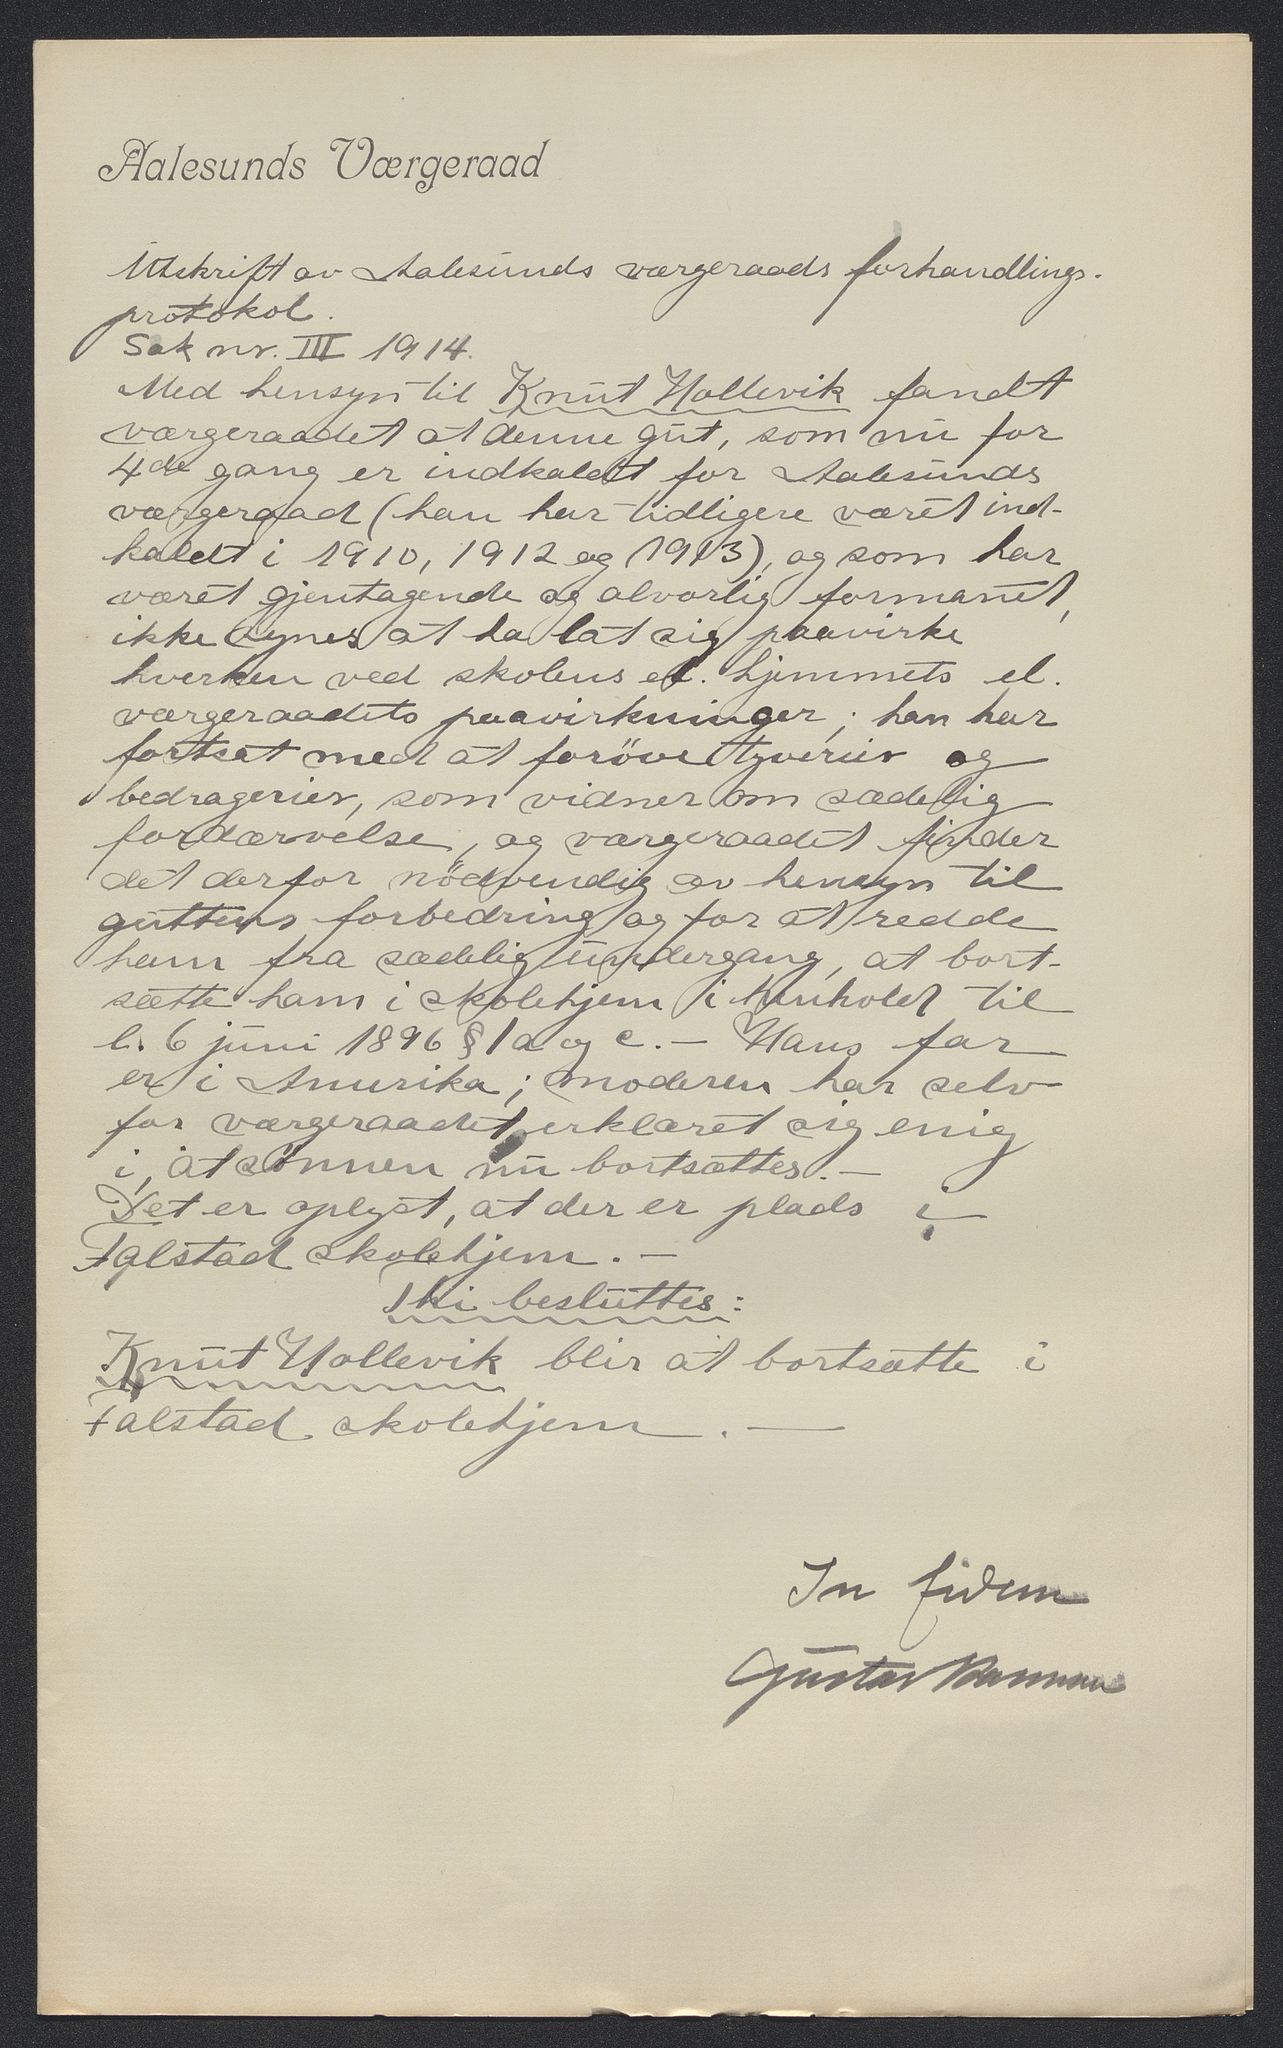 Aalesunds Værgeraad
Utskrift av Aalesunds værgeraads forhandlings-
protokol.
Sak nr. III 1914.
Med hensyn til Knut Hollevik fandt
værgeraadet at denne gut, som nu for
4de gang er indkaldt for Aalesunds
værgeraad (han har tidligere været ind-
kaldt i 1910, 1912 og 1913), og som har
været gjentagende og alvorlig formanet,
ikke synes at ha lat sig paavirke
hverken ved skolens el. hjemmets el.
værgeraadets paavirkninger; han har
fortsat med at foröve tyverier og
bedragerier, som vidner om sædelig
fordærvelse, og værgeraadet finder
det derfor nödvendig av hensyn til
guttens forbedring og for at redde
ham fra sædelig undergang, at bort-
sætte ham i skolehjem i henhold til
l. 6 juni 1896 § 1 a og c. — Hans far
er i Amerika; moderen har selv
for værgeraadet erklæret sig enig
i, at sönnen nu bortsættes. —
Det er oplyst, at der er plads i
Falstad skolehjem. —
Thi besluttes:
Knut Hollevik blir at bortsætte i
Falstad skolehjem. —
In fidem
Gustav